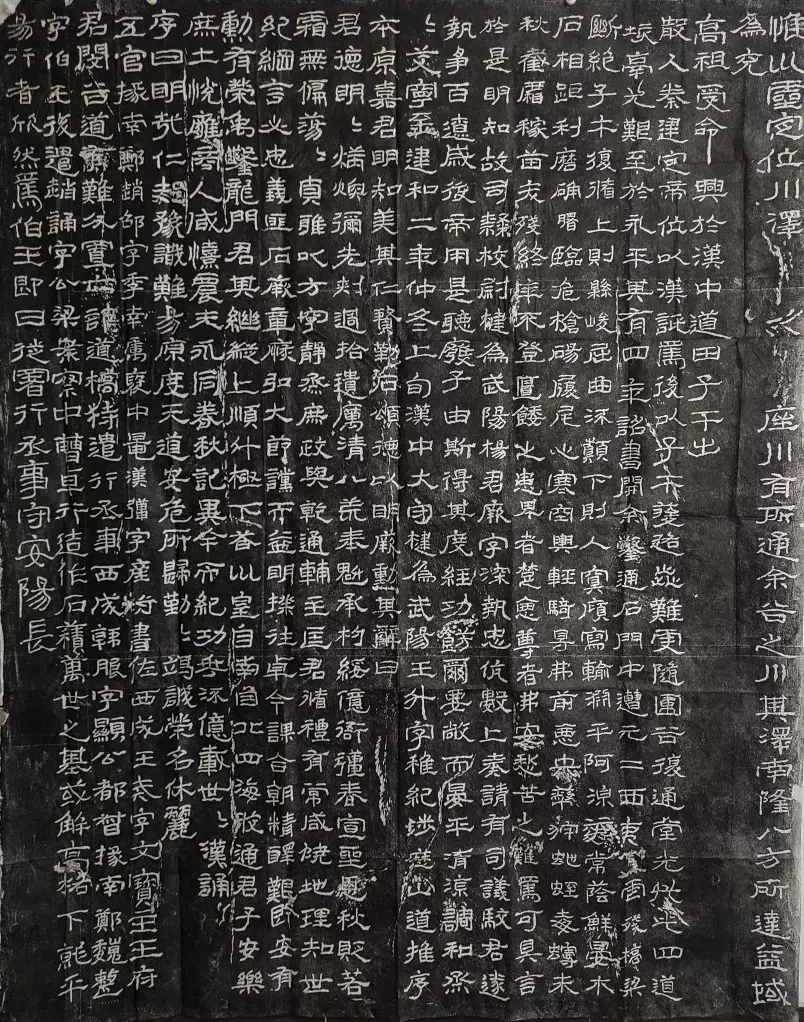 惟巛靈定位川澤股躬澤有所注川有所通余谷之川其澤南隆八方所達益域
為充
高祖受命興於漢中道由子午出
散入秦建定帝位以漢詆焉後以子午途路歰難更隨圍谷復通堂光凡此四道
垓鬲尤艱至於永平其有四年詔書開余鑿通石門中遭元二西夷虐殘橋梁
斷絕子午復循上則縣峻屈曲流顛下則入冥傾寫輸淵平阿湶泥常蔭鮮晏木
石相距利磨确磐臨危槍碭履尾心寒空輿輕騎遰㝵弗前惡虫𢢾狩虵蛭毒蟃未
秋截霜稼苗夭殘終年不登匱餧之患卑者楚惡尊者弗安愁苦之難焉可具言
於是明知故司隸校尉楗為武陽楊君厥字孟文深執忠伉數上奏請有司議駮君遂
執爭百遼咸從帝用是聽廢子由斯得其度經功飭爾要敞而晏平清涼調和烝
〻艾寧至建和二年仲冬上旬漢中大守楗為武陽王升字稚紀涉歷山道推序
本原嘉君明知美其仁賢勒石頌德以明厥勳其辭曰
君德明〻炳煥彌光刺過拾遺厲清八荒奉魁承杓綏億衙彊春宣聖恩秋貶若
霜無偏蕩〻貞雅以方寧靜烝庶政與乾通輔主匡君循禮有常咸曉地理知世
紀綱言必忠義匪石厥章恢弘大節讜而益明揆往卓今謀合朝情醳艱即安有
勳有榮禹鑿龍門君其繼縱上順斗極下答巛皇自南自北四海攸通君子安樂
庶士悅雍商人咸憘農夫永同春秋記異今而紀功垂流億載世〻嘆誦
序曰明哉仁知豫識難易原度天道安危所歸勤〻竭誠榮名休麗
五官掾南鄭趙邵字季南屬褒中晁漢彊字產伯書佐西成王戒字文寶主王府
君閔谷道危難分置六部道橋特遣行丞事西成韓朖字顯公都督掾南鄭魏整
字伯玉後遣趙誦字公梁案察中曹卓行造作石積萬世之基或解高格下就平
易行者欣然焉伯玉即日徙署行丞事守安陽長